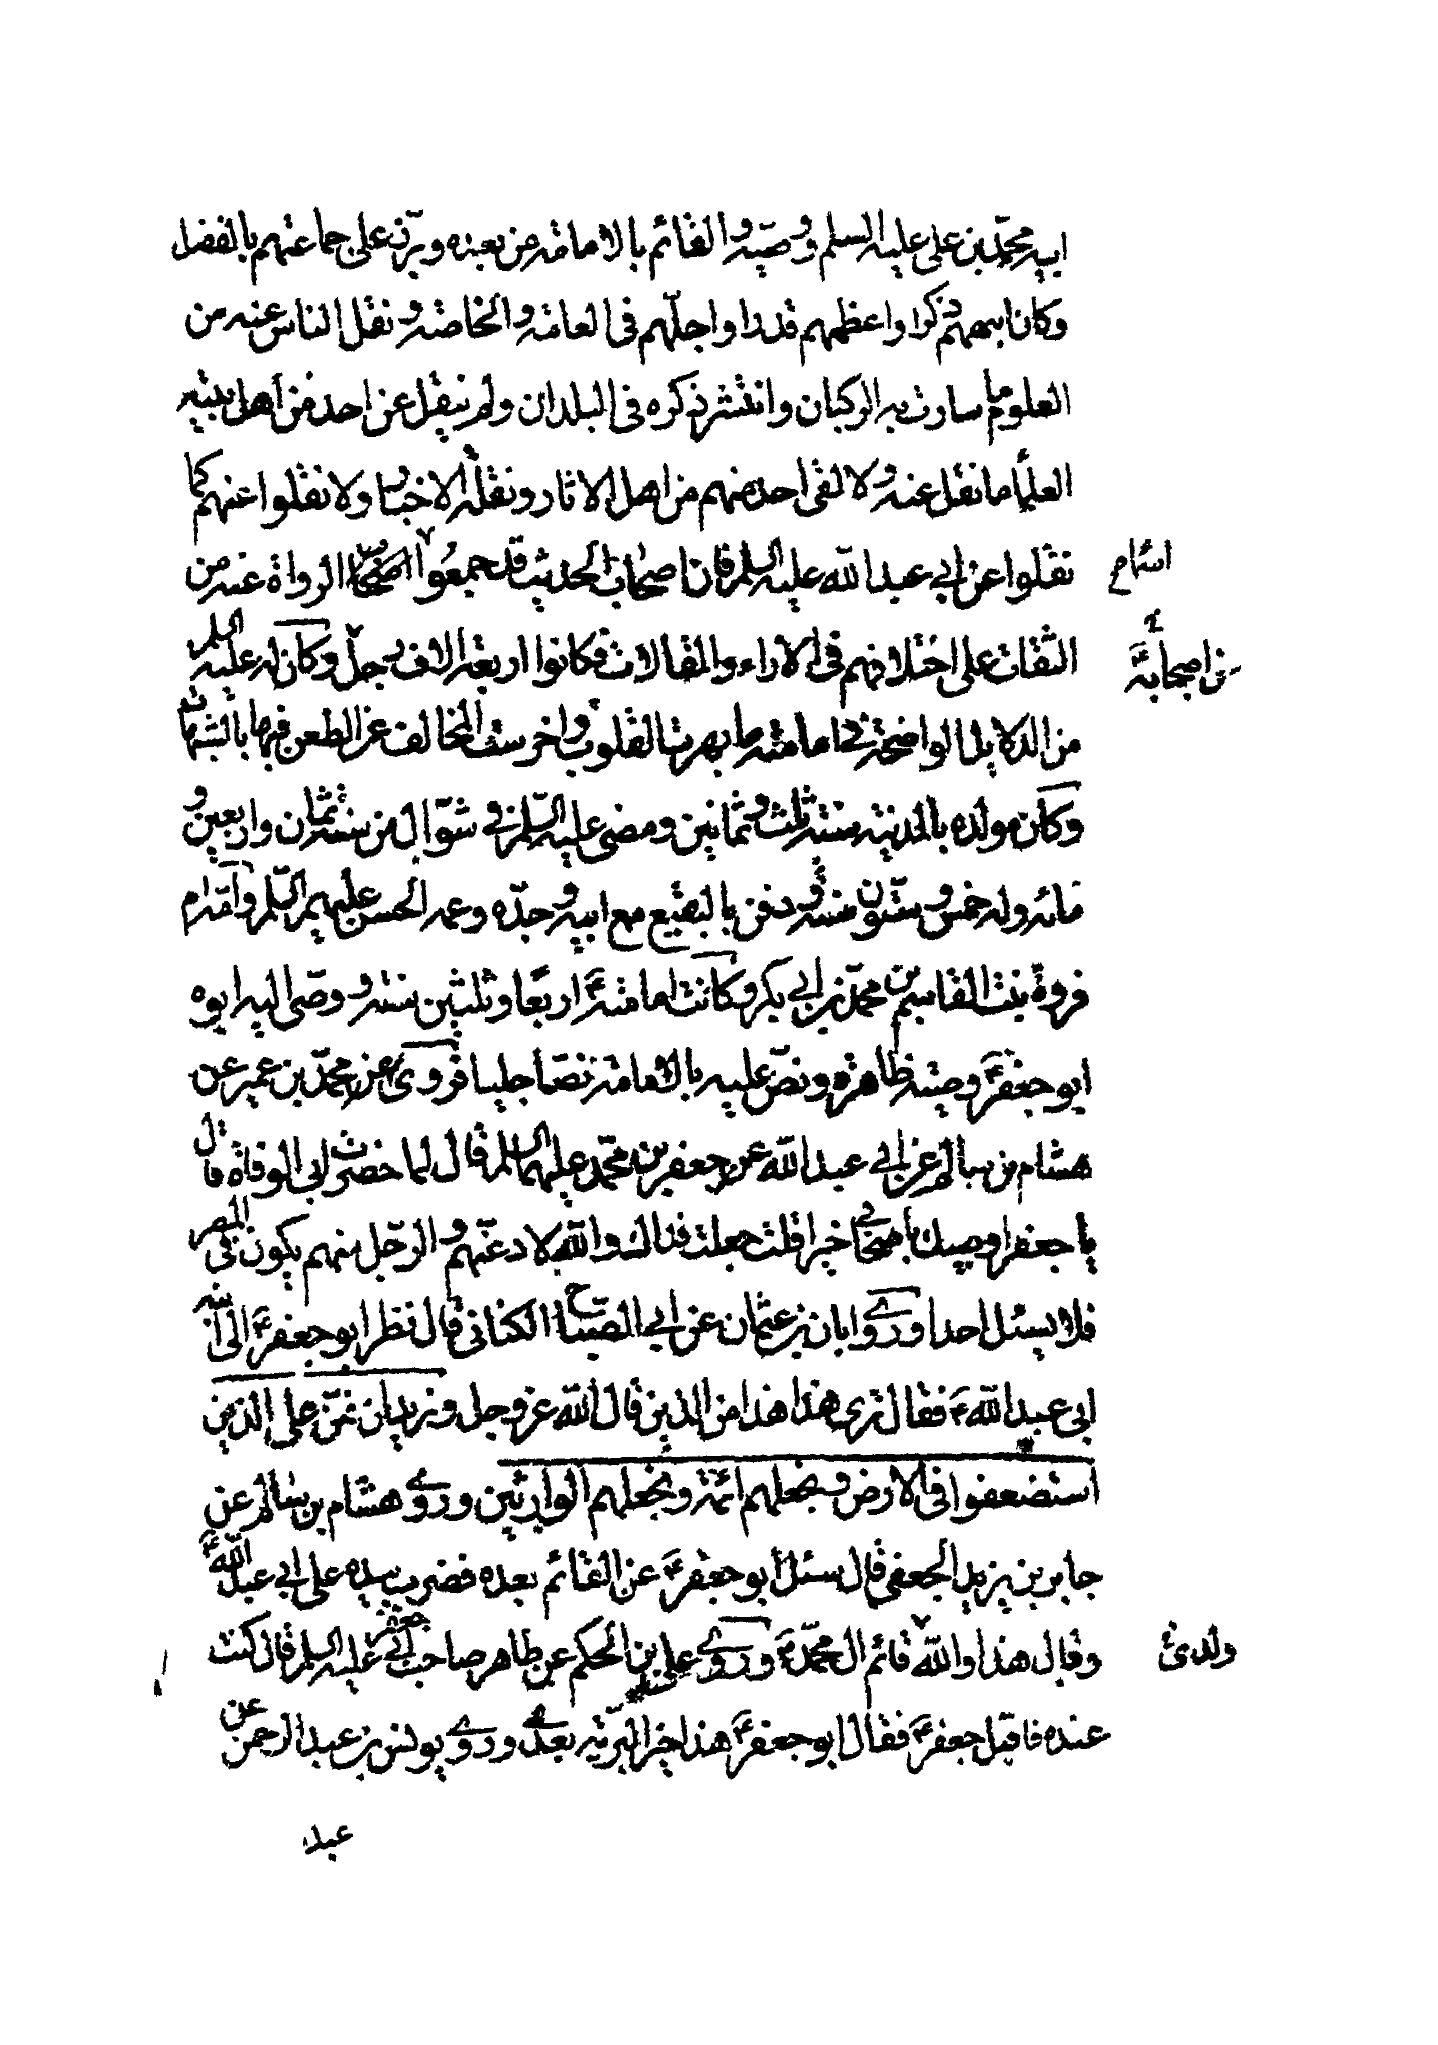 ابيه محمّد بن علي عليه السلم وصيّه والقائم بالامامة من بعده وبرّز على جماعتهم بالفضل
وكان ابنههم ذكرا واعظمهم قدرا واجلّهم في العامة والخاصة ونقل الناس عنه من
العلوم ما سارت به الركبان وانتشر ذكره في البلدان ولم ينقل عن احد من أهل بيته
العلماء ما نقل عنه ولا لقى احد منهم من اهل الاثار ونقلة الاخبار ولا نقلوا عنهم كما
نقلوا عن ابي عبدالله عليه السلم فان اصحاب الحديث قد جمعوا اصحاب الرواة عنه من
اسماء
الثقات على اختلافهم في الاراء والمقالات فكانوا اربعة الاف رجل وكان له عليه السلم
من اصحابه ع
من الدلايل الواضحة في امامته ما بهرت القلوب واخرست المخالف عن الطعن فيها بالشبهات
وكان مولده بالمدينة سنة ثلث وثمانين ومضى عليه السلم في شوّال من سنة ثمان واربعين و
مائه وله خمس وستّون سنة ودفن بالبقيع مع ابيه وجدّه وعمه الحسن عليهم السّلم وامّه ام
فروة بنت القاسم بن محمّد بن ابي بكر وكانت امامته ع اربعًا وثلثين سنة ووصّى اليه ابوه
ابو جعفر ع وصيته ظاهرة ونصّ عليه بالامامة نصّا جليا فروى عن محمّد بن عمير عن
هشام بن سالم عن ابي عبدالله عن جعفر بن محمّد عليهما السلم قال لما حضرت ابي الوفاة قال
يا جعفر اوصيك بأصحابي خيرا قلت جعلت فداك والله لادعنّهم والرّجل منهم يكون في المصر
فلا يسئل احدا وروى ابان بن عثمان عن ابي الصّباح الكناني قال نظر ابو جعفر ع الى ابنه
ابي عبدالله ع فقال ترى هذا هذا من الذين قال الله عز وجل ونريد ان نمنّ على الذين
استضعفوا في الارض ونجعلهم ائمّة ونجعلهم الوارثين وروى هشام بن سالم عن
جابر بن يزيد الجعفي قال سئل أبو جعفر ع عن القائم بعده فضرب بيده على ابي عبدالله ع
وقال هذا والله قائم ال محمّد ع وروى علي بن الحكم عن طاهر صاحب ابي جعفر عليه السلم قال كنت
ولدي
عنده فاقبل جعفر ع فقال ابو جعفر ع هذا خير البريّة بعدي وروى يونس بن عبدالرحمن عن
عبد